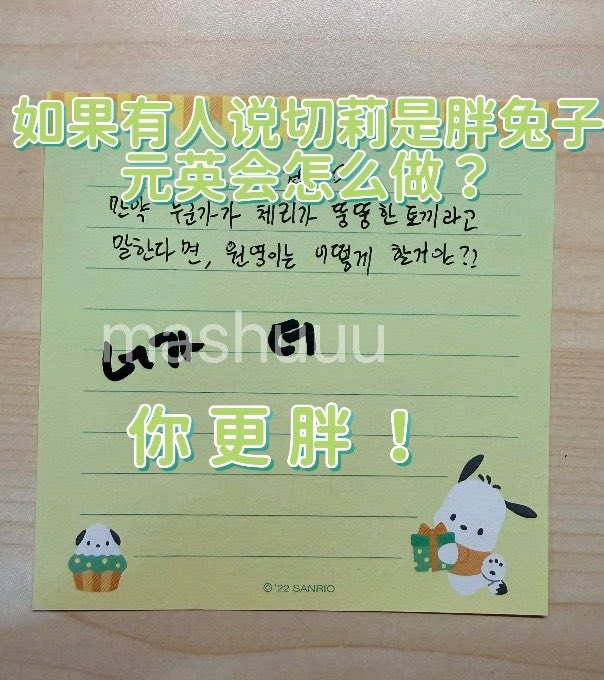 如果有人说切莉是胖兔子
元英会怎么做？
만약 누군가가 체리가 뚱뚱한 토끼라고
말한다면, 원영이는 어떻게 할거야?!
mashuuu
니가 더
你更胖！
© '22 SANRIO